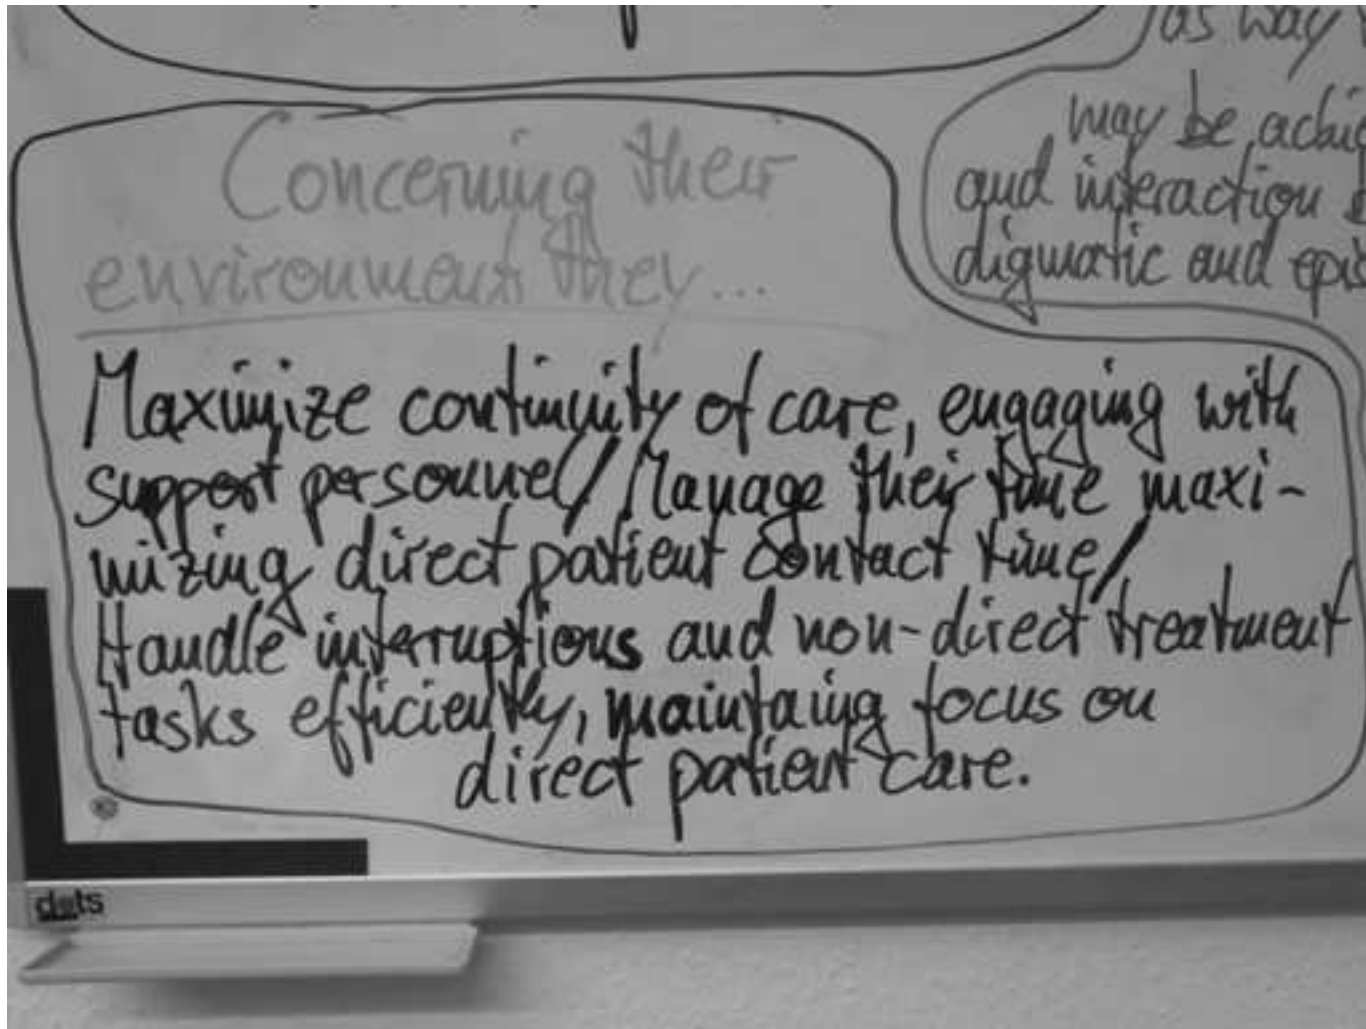 as way
may be
and interaction
digmatic and
Concerning their
environment they...
Maximize continuity of care, engaging with
support personnel/Manage their time maxi-
mizing direct patient contact time/
Handle interruptions and non-direct treatment
tasks efficiently, maintaing focus on
direct patient care.
dots